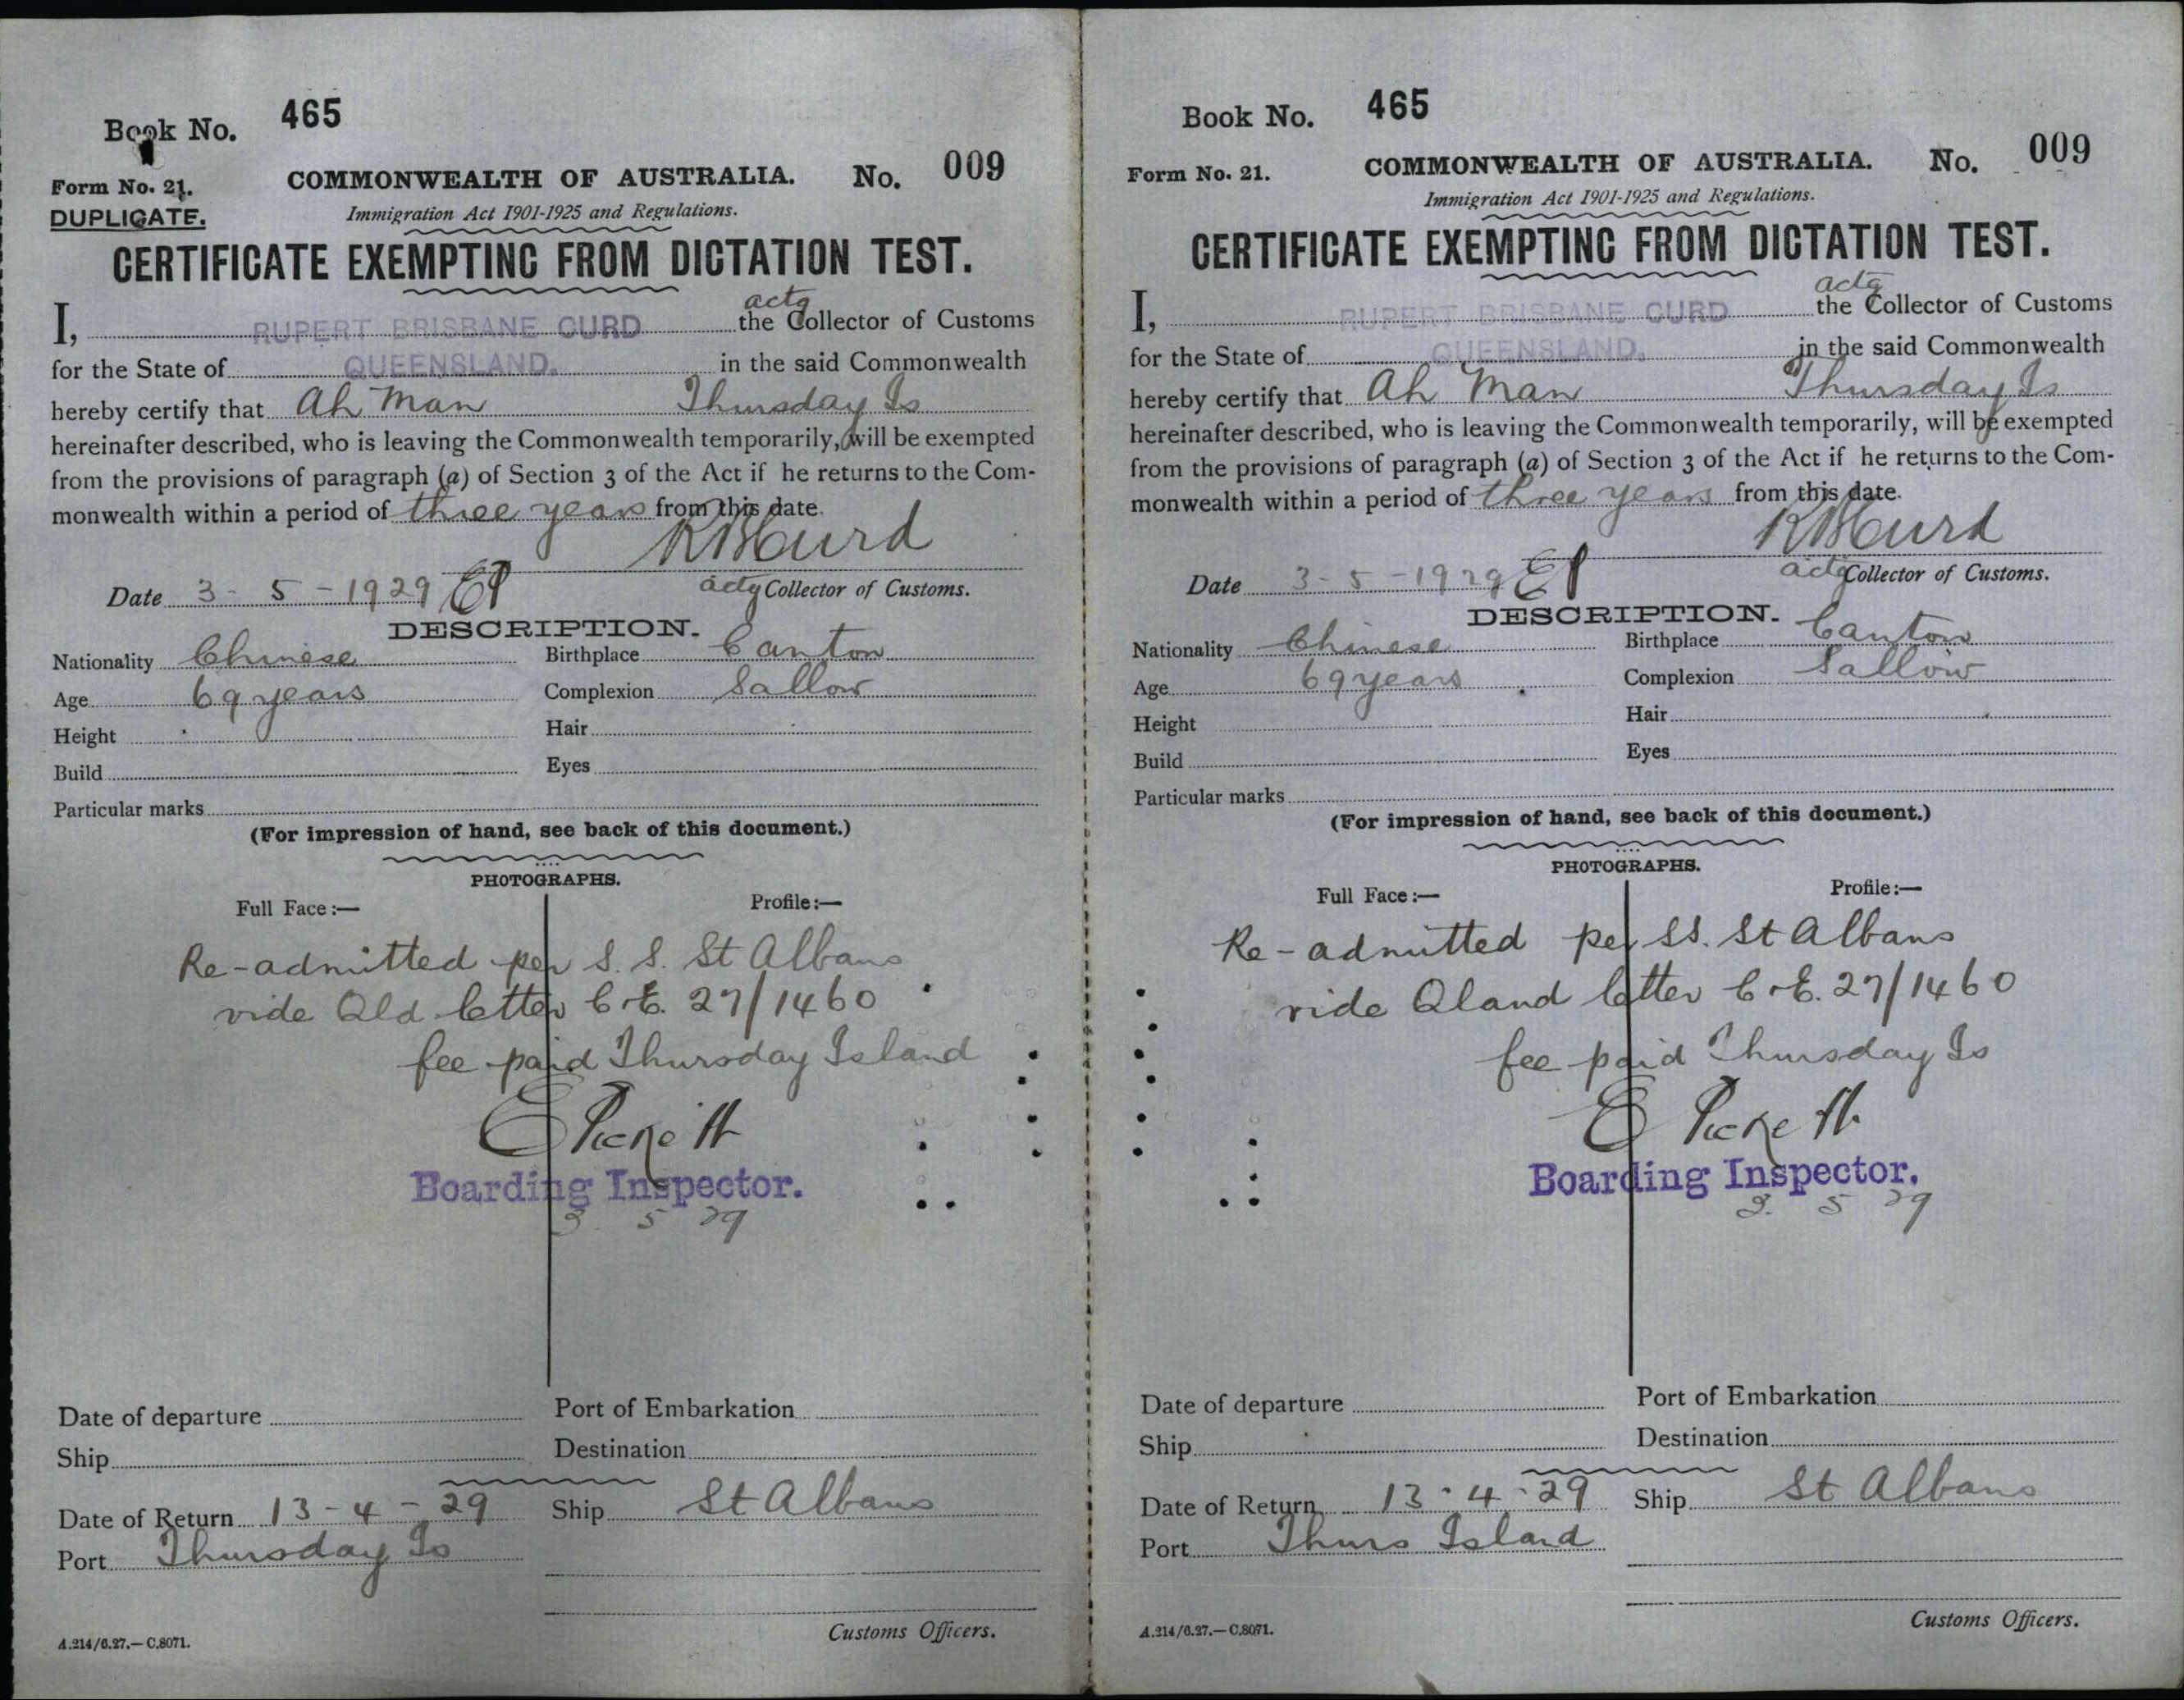 Book No. 465
Form No. 21.
DUPLICATE.
COMMONWEALTH OF AUSTRALIA. No. 009
Immigration Act 1901-1925 and Regulations.
CERTIFICATE EXEMPTING FROM DICTATION TEST.
actg
I, RUPERT BRISBANE CURD the Collector of Customs
for the State of QUEENSLAND. in the said Commonwealth
hereby certify that Ah Man Thursday Is
hereinafter described, who is leaving the Commonwealth temporarily, will be exempted
from the provisions of paragraph (a) of Section 3 of the Act if he returns to the Com-
monwealth within a period of three years from this date.
RBCurd
Date 3-5-1929 EP actg Collector of Customs.
DESCRIPTION.
Nationality Chinese Birthplace Canton
Age 69 years Complexion Sallow
Height Hair
Build Eyes
Particular marks
(For impression of hand, see back of this document.)
PHOTOGRAPHS.
Full Face:— Profile:—
Re-admitted per S.S. St Albans
vide Qld letter C & E. 27/1460
fee paid Thursday Island
E Pickett
Boarding Inspector.
3 5 29
Date of departure Port of Embarkation
Ship Destination
Date of Return 13-4-29 Ship St Albans
Port Thursday Is
Customs Officers.
A.214/6.27.—C.8071.
Book No. 465
Form No. 21. COMMONWEALTH OF AUSTRALIA. No. 009
Immigration Act 1901-1925 and Regulations.
CERTIFICATE EXEMPTING FROM DICTATION TEST.
actg
I, RUPERT BRISBANE CURD the Collector of Customs
for the State of QUEENSLAND. in the said Commonwealth
hereby certify that Ah Man Thursday Is
hereinafter described, who is leaving the Commonwealth temporarily, will be exempted
from the provisions of paragraph (a) of Section 3 of the Act if he returns to the Com-
monwealth within a period of three years from this date.
RBCurd
Date 3-5-1929 EP actg Collector of Customs.
DESCRIPTION.
Nationality Chinese Birthplace Canton
Age 69 years Complexion Sallow
Height Hair
Build Eyes
Particular marks
(For impression of hand, see back of this document.)
PHOTOGRAPHS.
Full Face:— Profile:—
Re-admitted per SS. St Albans
vide Qland letter C & E. 27/1460
fee paid Thursday Is
E Pickett
Boarding Inspector.
3. 5 29
Date of departure Port of Embarkation
Ship Destination
Date of Return 13-4-29 Ship St Albans
Port Thurs Island
Customs Officers.
A.214/6.27.—C.8071.